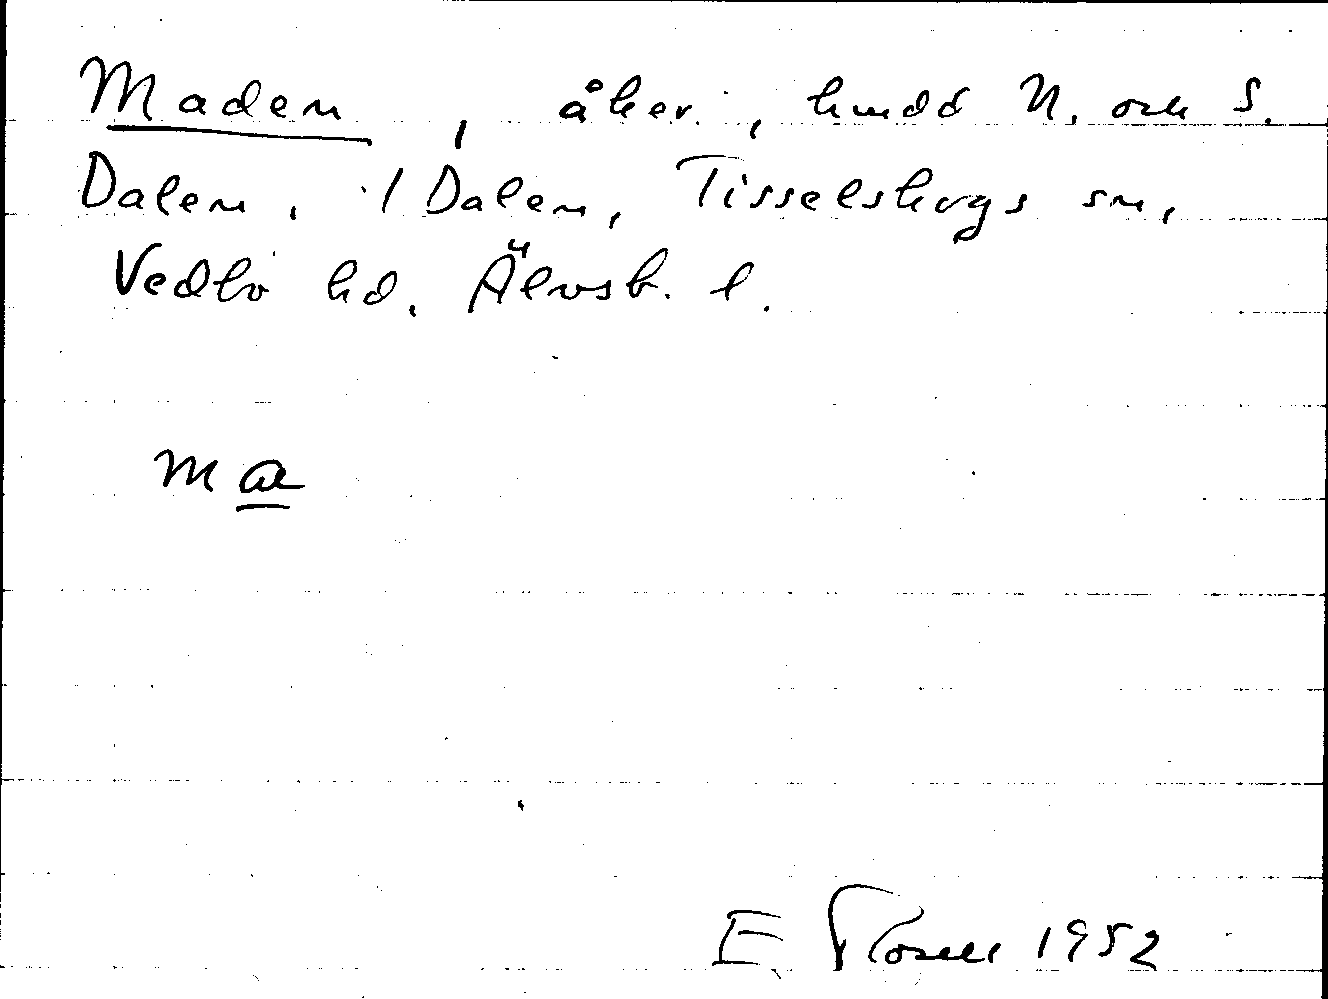 Maden, åker, hmdd N. och S.
Dalen, 1 Dalen, Tisselskogs sn,
Vedbo hd. Älvsb. l.
ma
E 1952